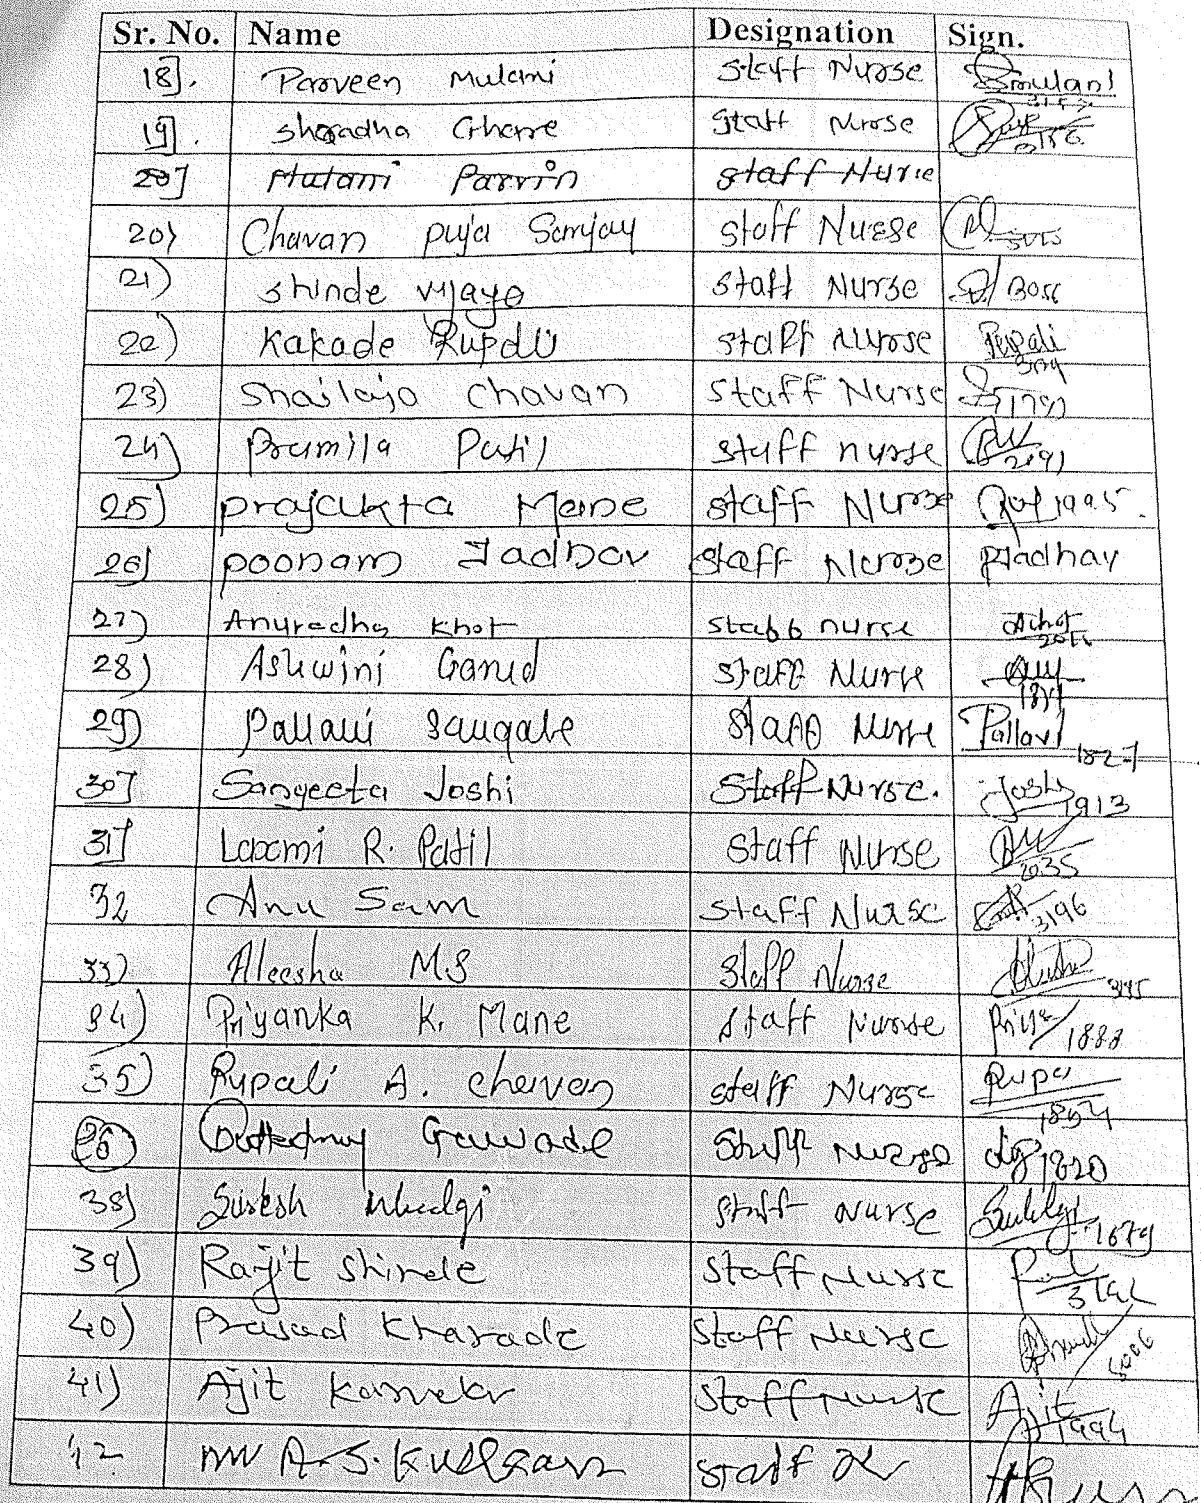 Sr. No. Name Designation Sign.
18]. Parveen Mulani Staff Nurse Smulani
19]. Sharadha Gharre Staff Nurse 3186
20] Mulani Parvin staff Nurse
20) Chavan puja Sanjay staff Nurse
21) Shinde vijaya staff Nurse
22) Kakade Rupali staff Nurse Rupali
23) Shailaja Chavan Staff Nurse
24) Pramila Patil staff nurse 2191
25) prajakta Mane staff Nurse 1995.
26) poonam Jadhav staff Nurse PJadhav
27) Anuradha Khot staff nurse
28) Ashwini Garud Staff Nurse
29) Pallavi Saugate Staff Nurse Pallavi 1827
30] Sangeeta Joshi Staff Nurse. Joshi 1913
31] Laxmi R. Patil Staff Nurse 2035
32 Anu Sam Staff Nurse 3196
33) Aleesha M.S Staff Nurse
34) Priyanka K. Mane Staff Nurse Priya 1888
35) Rupali A. Chavan staff Nurse Rupa 1894
36 Dattatray Gawade Staff Nurse dg 1820
38) Suresh Mudgi Staff Nurse 1679
39) Ranjit Shinde Staff Nurse
40) Prasad Kharade Staff Nurse
41) Ajit Kamekar Staff Nurse Ajit 1994
42 A.S. staff